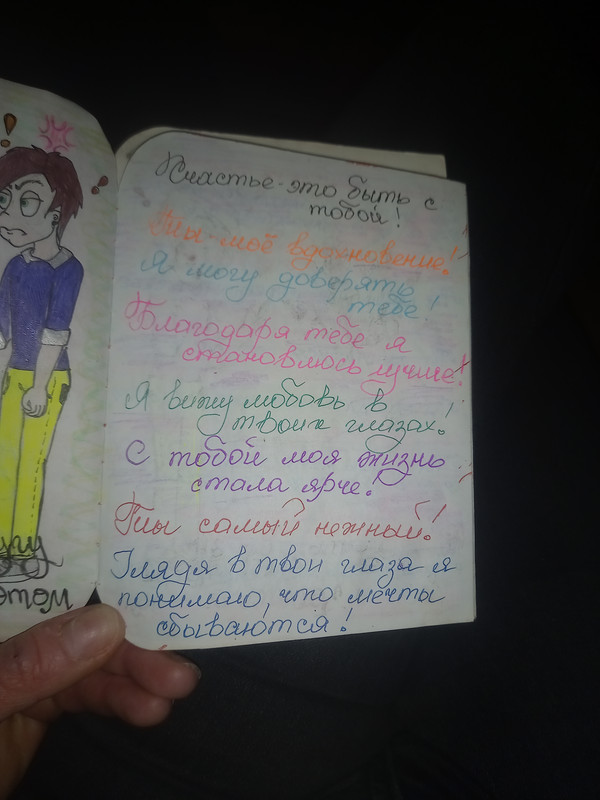 Счастье-это быть с
тобой!
Ты-моё вдохновение!
Я могу доверять
тебе!
Благодаря тебе я
становлюсь лучше!
Я вижу любовь в
твоих глазах!
С тобой моя жизнь
стала ярче!
Ты самый нежный!
Глядя в твои глаза я
понимаю, что мечты
сбываются!
этом